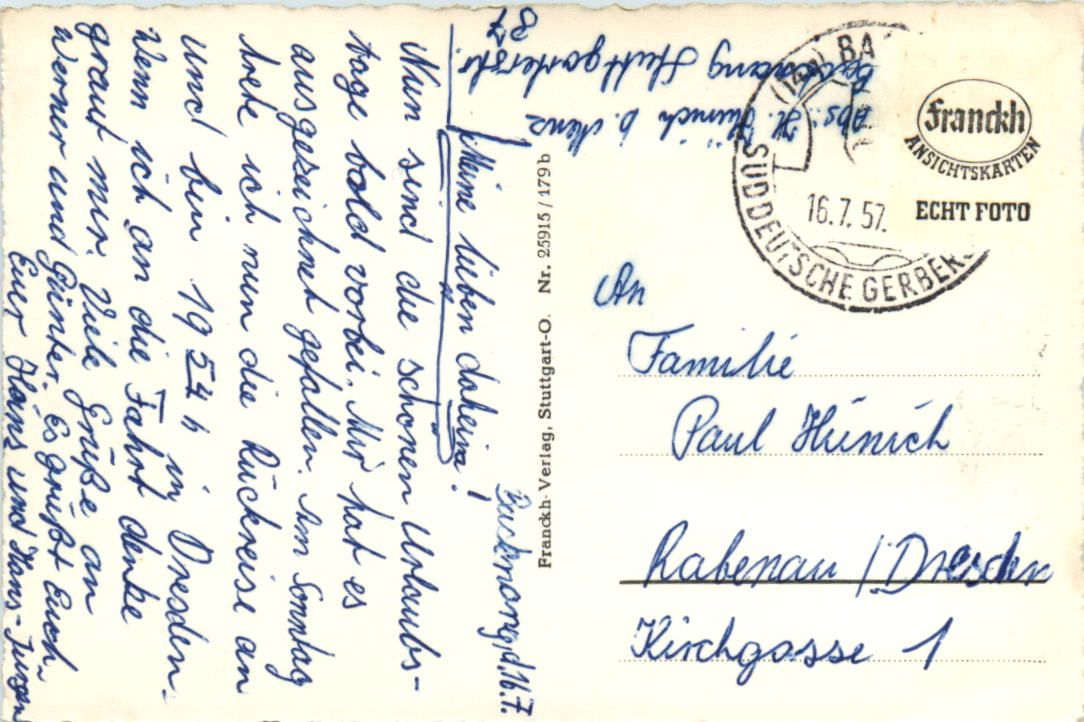 Backnang, d. 16.7.
Meine lieben daheim!
Nun sind die schönen Urlaubs-
tage bald vorbei. Mir hat es
ausgezeichnet gefallen. Am Sonntag
trete ich nun die Rückreise an
und bin 19 54 h in Dresden.
Wenn ich an die Fahrt denke
graut mir. Viele Grüße an
Werner und Günter. Es grüßt Euch
Euer Hans und Hans-Jürgen
Abs: H. Hünich b. Menz
Backnang Stuttgarterstr.
87
Franckh-Verlag, Stuttgart-O. Nr. 25915 / 179 b
(14a) BA
SÜDDEUTSCHE GERBER
16.7.57.
Franckh
ANSICHTSKARTEN
ECHT FOTO
An
Familie
Paul Hünich
Rabenau / Dresden
Kirchgasse 1